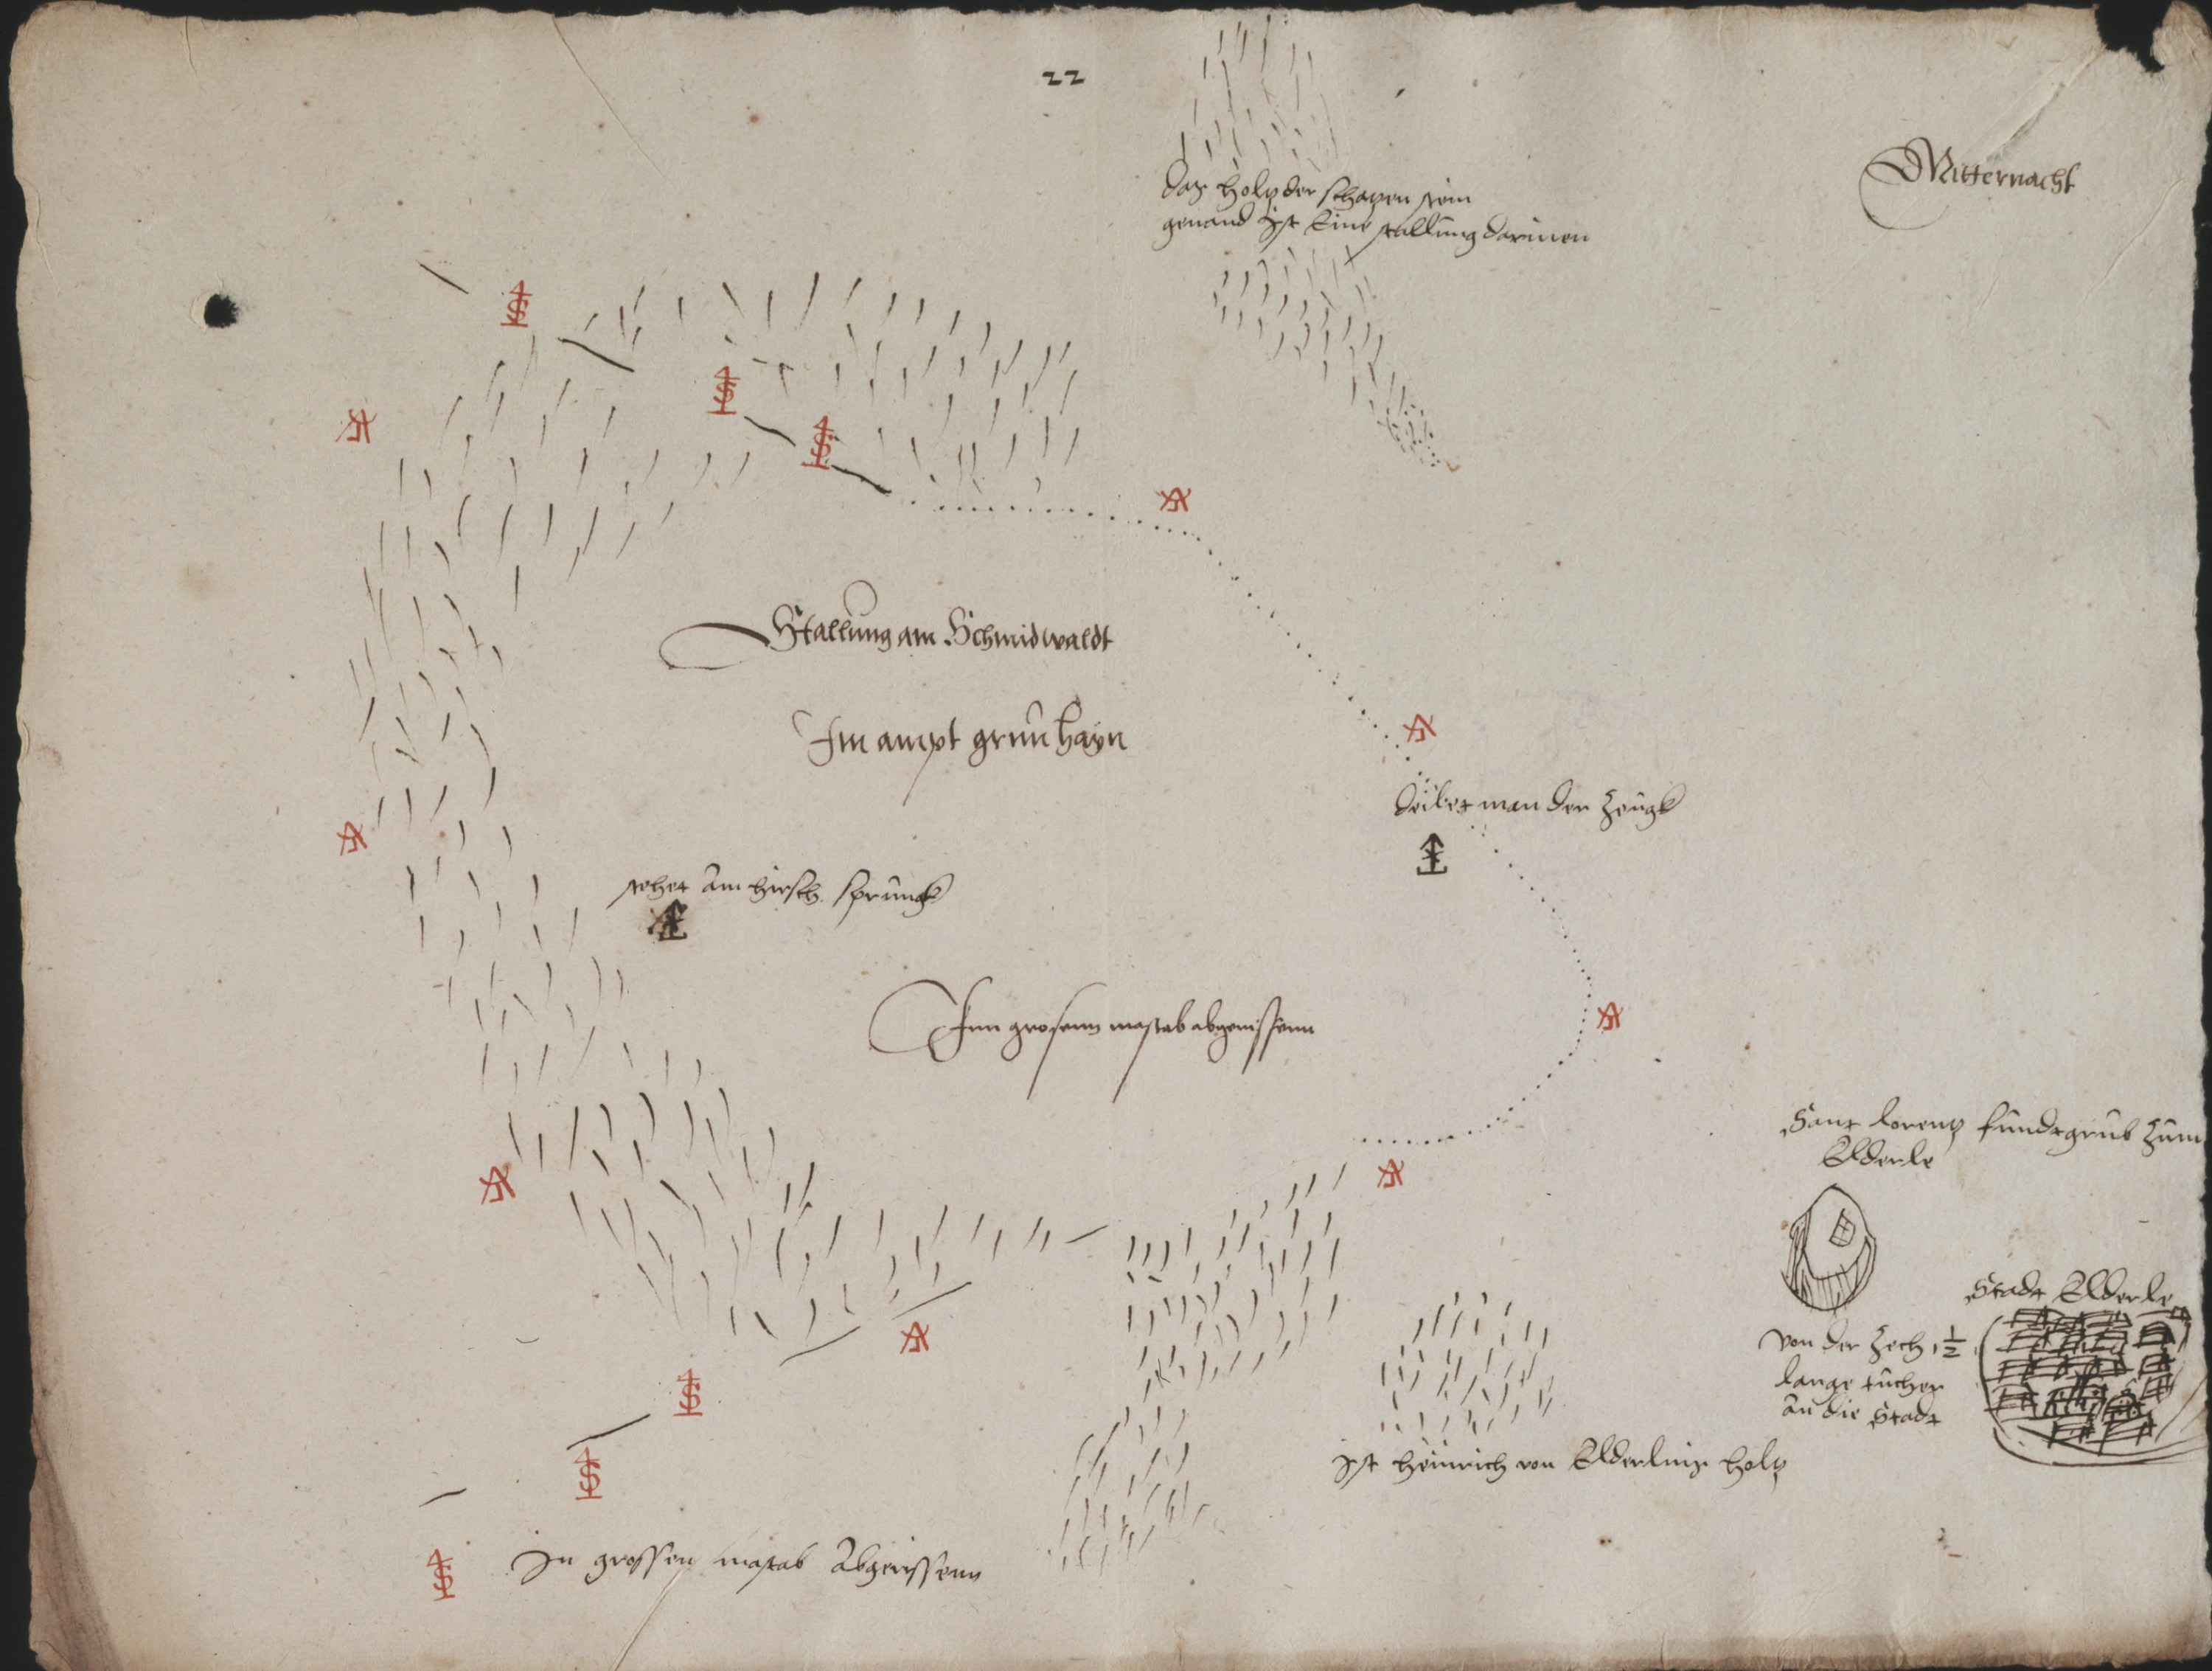 22
Mitternacht
das holtz der schatzen stein
genand Ist Eine stallung darinen
Stallung am Schmidwaldt
Im ampt grun hayn
man der Zeugk
stehet Am hirsch sprungk
Inn grosenn mastab abgerissenn
Sant lorentz fundtgrub Zum
Elderle
Stadt Elderle
von der Zech 1 1/2
lange tucher
An die Stadt
Ist heinrich von Elderlings holtz
In grossen mastab Abgerissenn